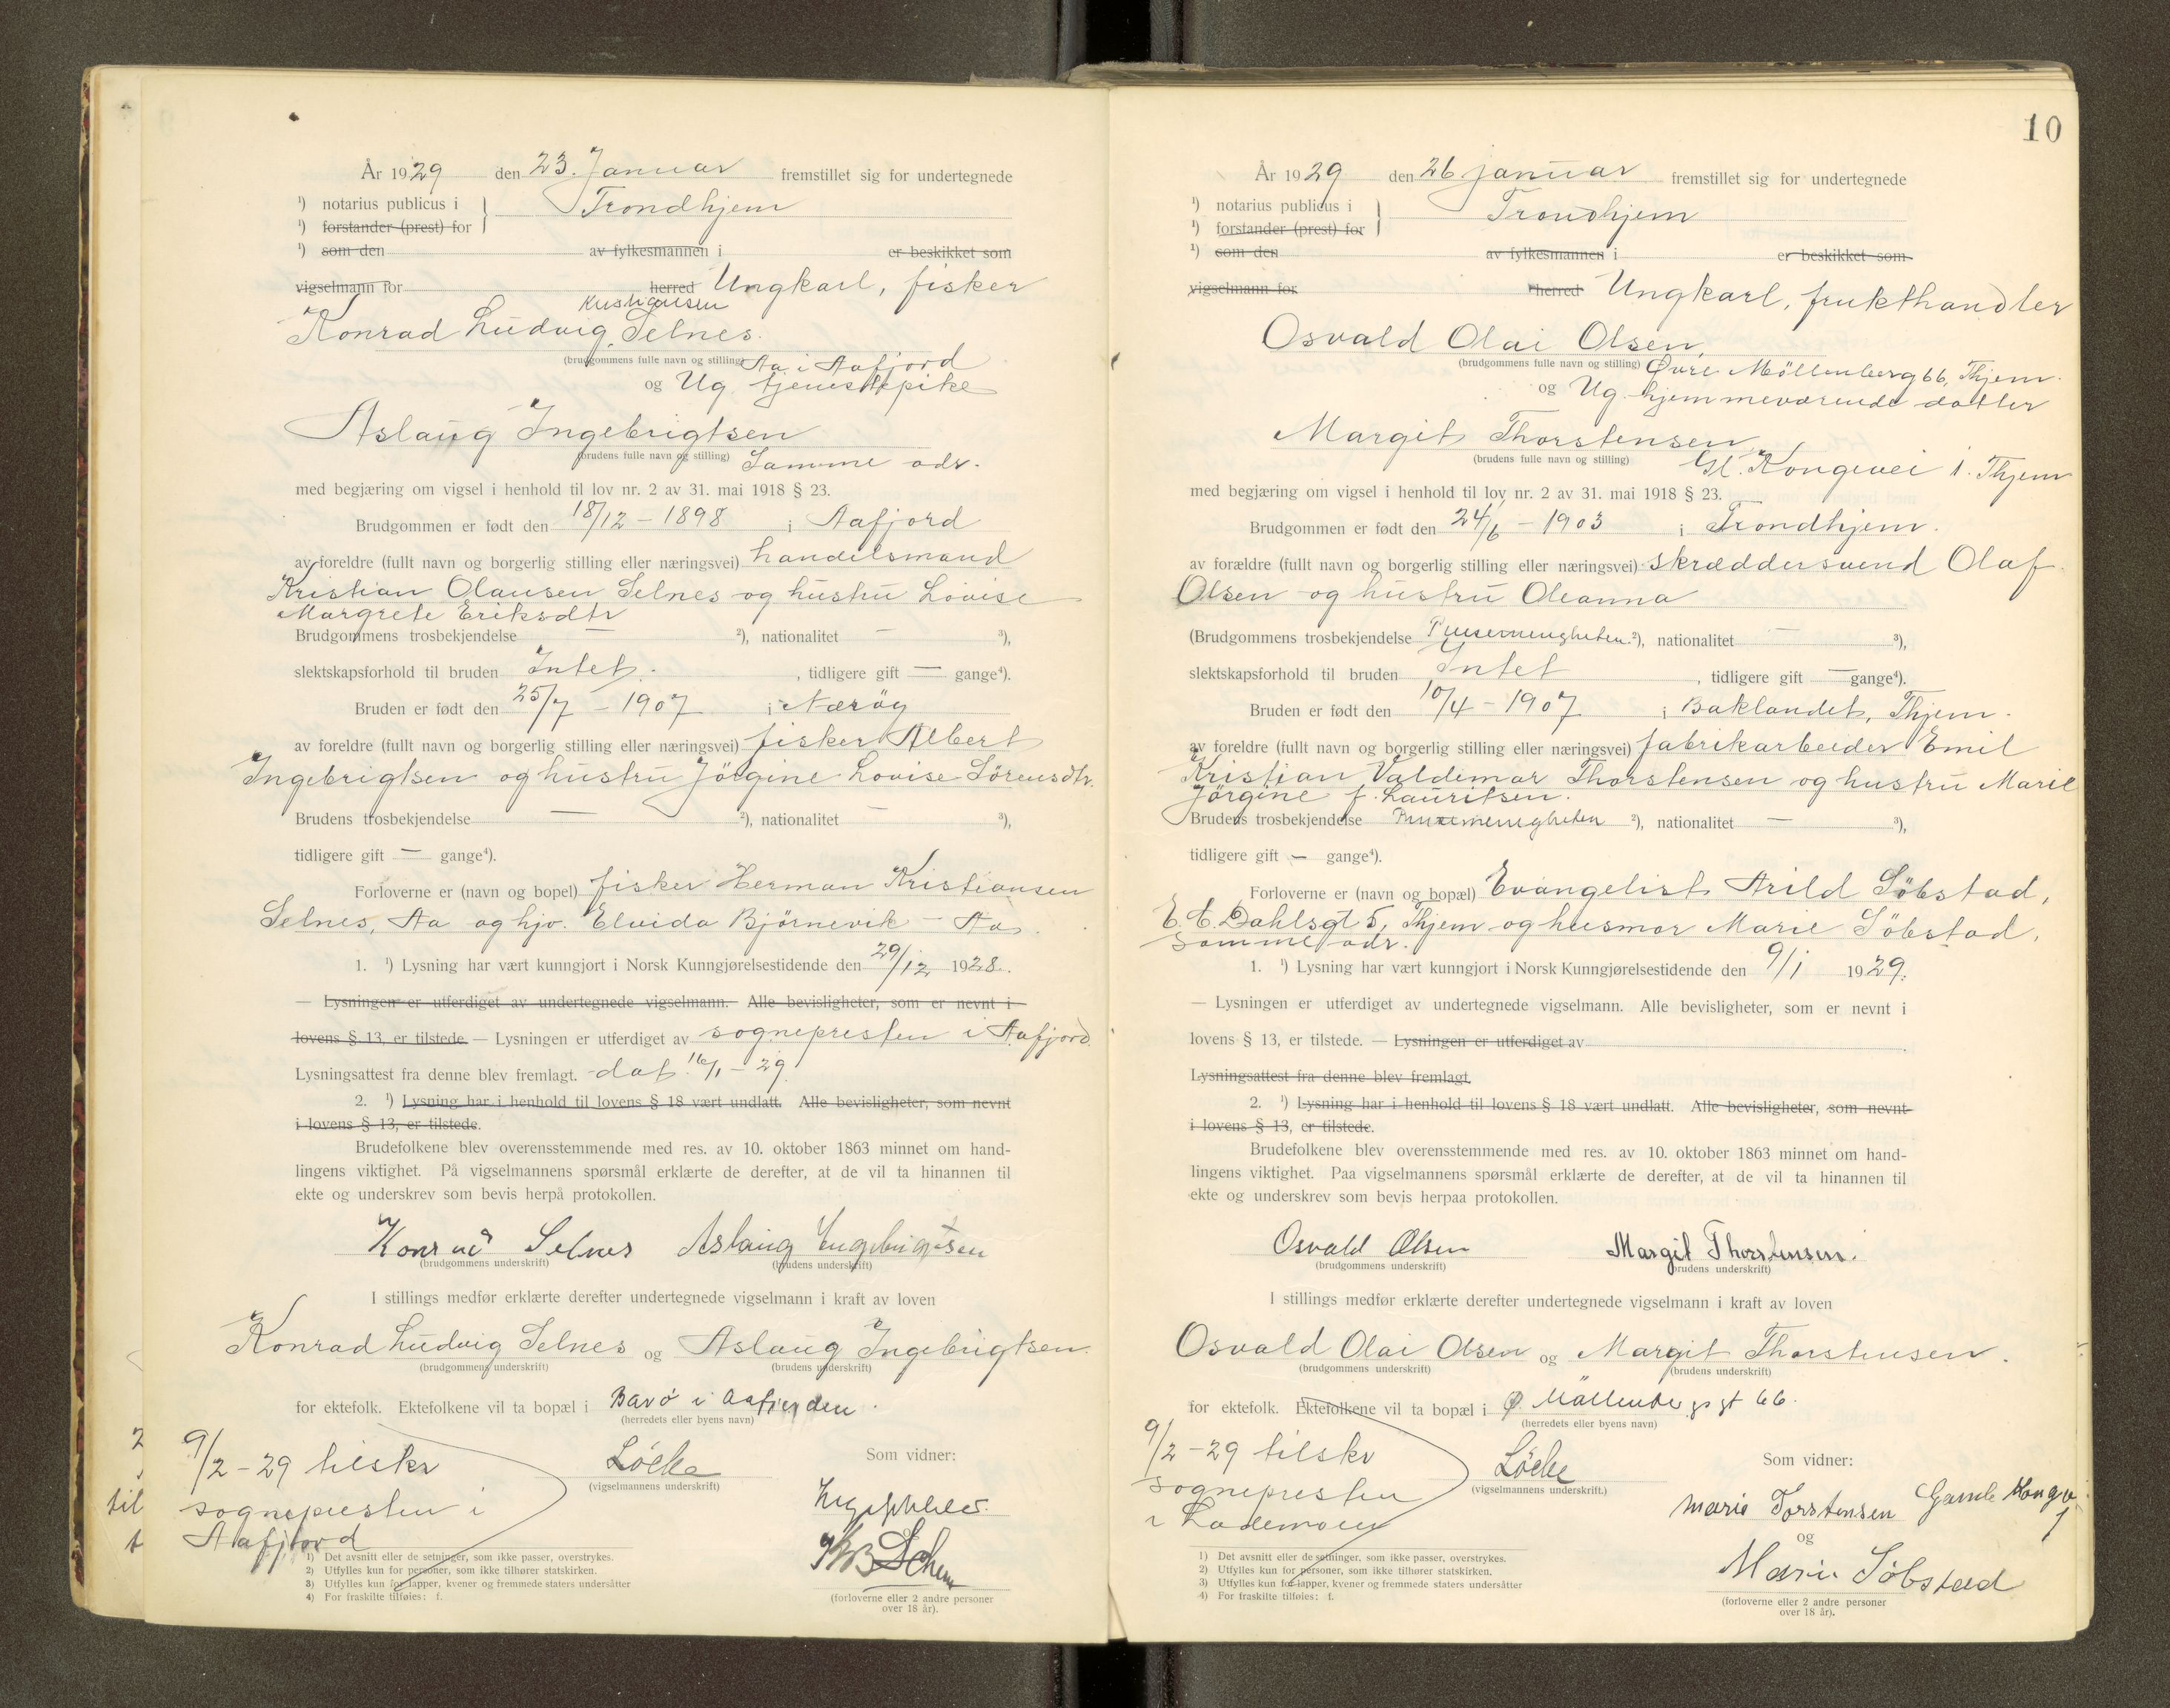 År 1929 den 23. Januar fremstillet sig for undertegnede
¹) notarius publicus i } Trondhjem
¹) forstander (prest) for
¹) som den av fylkesmannen i er beskikket som
vigselmann for herred Ungkarl, fisker
Kristiansen
Konrad Ludvig Selnes.
(brudgommens fulle navn og stilling) Aa i Aafjord
og Ug. tjenestepike
Aslaug Ingebrigtsen
(brudens fulle navn og stilling) Samme adr.
med begjæring om vigsel i henhold til lov nr. 2 av 31. mai 1918 § 23.
Brudgommen er født den 18/12 - 1898 i Aafjord
av foreldre (fullt navn og borgerlig stilling eller næringsvei) handelsmand
Kristian Olausen Selnes og hustru Lovise
Margrete Eriksdtr
Brudgommens trosbekjendelse — ²), nationalitet — ³),
slektskapsforhold til bruden Intet. , tidligere gift — gange⁴).
Bruden er født den 25/7 - 1907 i Nærøy
av foreldre (fullt navn og borgerlig stilling eller næringsvei) fisker Albert
Ingebrigtsen og hustru Jörgine Lovise Sörensdtr.
Brudens trosbekjendelse — ²), nationalitet — ³),
tidligere gift — gange⁴).
Forloverne er (navn og bopel) fisker Herman Kristiansen
Selnes, Aa og hjv. Elvida Bjørnevik - Aa.
1. ¹) Lysning har vært kunngjort i Norsk Kunngjørelsestidende den 29/12 1928.
— Lysningen er utferdiget av undertegnede vigselmann. Alle bevisligheter, som er nevnt i
lovens § 13, er tilstede. — Lysningen er utferdiget av sognepresten i Aafjord.
Lysningsattest fra denne blev fremlagt. dat. 16/1 - 29.
2. ¹) Lysning har i henhold til lovens § 18 vært undlatt. Alle bevisligheter, som nevnt
i lovens § 13, er tilstede.
Brudefolkene blev overensstemmende med res. av 10. oktober 1863 minnet om hand-
lingens viktighet. På vigselmannens spørsmål erklærte de derefter, at de vil ta hinannen til
ekte og underskrev som bevis herpå protokollen.
Konrad Selnes Aslaug Engebrigtsen
(brudgommens underskrift) (brudens underskrift)
I stillings medfør erklærte derefter undertegnede vigselmann i kraft av loven
Konrad Ludvig Selnes og Aslaug Ingebrigtsen.
(brudgommens underskrift) (brudens underskrift)
for ektefolk. Ektefolkene vil ta bopæl i i Aafjorden.
(herredets eller byens navn)
9/2 - 29 tilskr
sognepresten i
Aafjord
Löcke
(vigselmannens underskrift)
Som vidner:
(forloverne eller 2 andre personer
over 18 år).
1) Det avsnitt eller de setninger, som ikke passer, overstrykes.
2) Utfylles kun for personer, som ikke tilhører statskirken.
3) Utfylles kun for lapper, kvener og fremmede staters undersåtter
4) For fraskilte tilføies: f.
2
til
t
10
År 1929 den 26 januar fremstillet sig for undertegnede
¹) notarius publicus i } Trondhjem
¹) forstander (prest) for
¹) som den av fylkesmannen i er beskikket som
vigselmann for herred Ungkarl, frukthandler
Osvald Olai Olsen,
(brudgommens fulle navn og stilling) Øvre Möllenberg 66, Thjem.
og Ug. hjemmeværende datter
Margit Thorstensen
(brudens fulle navn og stilling) Gl. Kongevei 1. Thjem
med begjæring om vigsel i henhold til lov nr. 2 av 31. mai 1918 § 23.
Brudgommen er født den 24/6 - 1903 i Trondhjem.
av forældre (fullt navn og borgerlig stilling eller næringsvei) skræddersvend Olaf
Olsen og hustru Oleanna
(Brudgommens trosbekjendelse Pinsemenigheten ²), nationalitet — ³),
slektskapsforhold til bruden Intet , tidligere gift — gange⁴).
Bruden er født den 10/4 - 1907 i Baklandet, Thjem.
av foreldre (fullt navn og borgerlig stilling eller næringsvei) fabrikarbeider Emil
Kristian Valdemar Thorstensen og hustru Marie
Jörgine f. Lauritsen.
Brudens trosbekjendelse Pinsemenigheten ²), nationalitet — ³),
tidligere gift — gange⁴).
Forloverne er (navn og bopæl) Evangelist Arild Söbstad,
E. C. Dahlsgt 5, Thjem og husmor Marie Söbstad,
samme adr.
1. ¹) Lysning har vært kunngjort i Norsk Kunngjørelsestidende den 9/1 1929.
— Lysningen er utferdiget av undertegnede vigselmann. Alle bevisligheter, som er nevnt i
lovens § 13, er tilstede. — Lysningen er utferdiget av
Lysningsattest fra denne blev fremlagt.
2. ¹) Lysning har i henhold til lovens § 18 vært undlatt. Alle bevisligheter, som nevnt
i lovens § 13, er tilstede.
Brudefolkene blev overensstemmende med res. av 10. oktober 1863 minnet om hand-
lingens viktighet. Paa vigselmannens spørsmål erklærte de derefter, at de vil ta hinannen til
ekte og underskrev som bevis herpaa protokollen.
Osvald Olsen Margit Thorstensen.
(brudgommens underskrift) (brudens underskrift)
I stillings medfør erklærte derefter undertegnede vigselmann i kraft av loven
Osvald Olai Olsen og Margit Thorstensen.
(brudgommens underskrift) (brudens underskrift)
for ektefolk. Ektefolkene vil ta bopæl i Ø. Möllenbergsgt 66.
(herredets eller byens navn)
9/2 - 29 tilskr
sognepresten
i Lademoen
Löcke
(vigselmannens underskrift.)
Som vidner:
Marie Torstensen Gamle Kongev 1
og
Marie Söbstad
(forloverne eller 2 andre personer
over 18 år).
1) Det avsnitt eller de setninger, som ikke passer, overstrykes.
2) Utfylles kun for personer, som ikke tilhører statskirken.
3) Utfylles kun for lapper, kvener og fremmede staters undersåtter
4) For fraskilte tilføies: f.